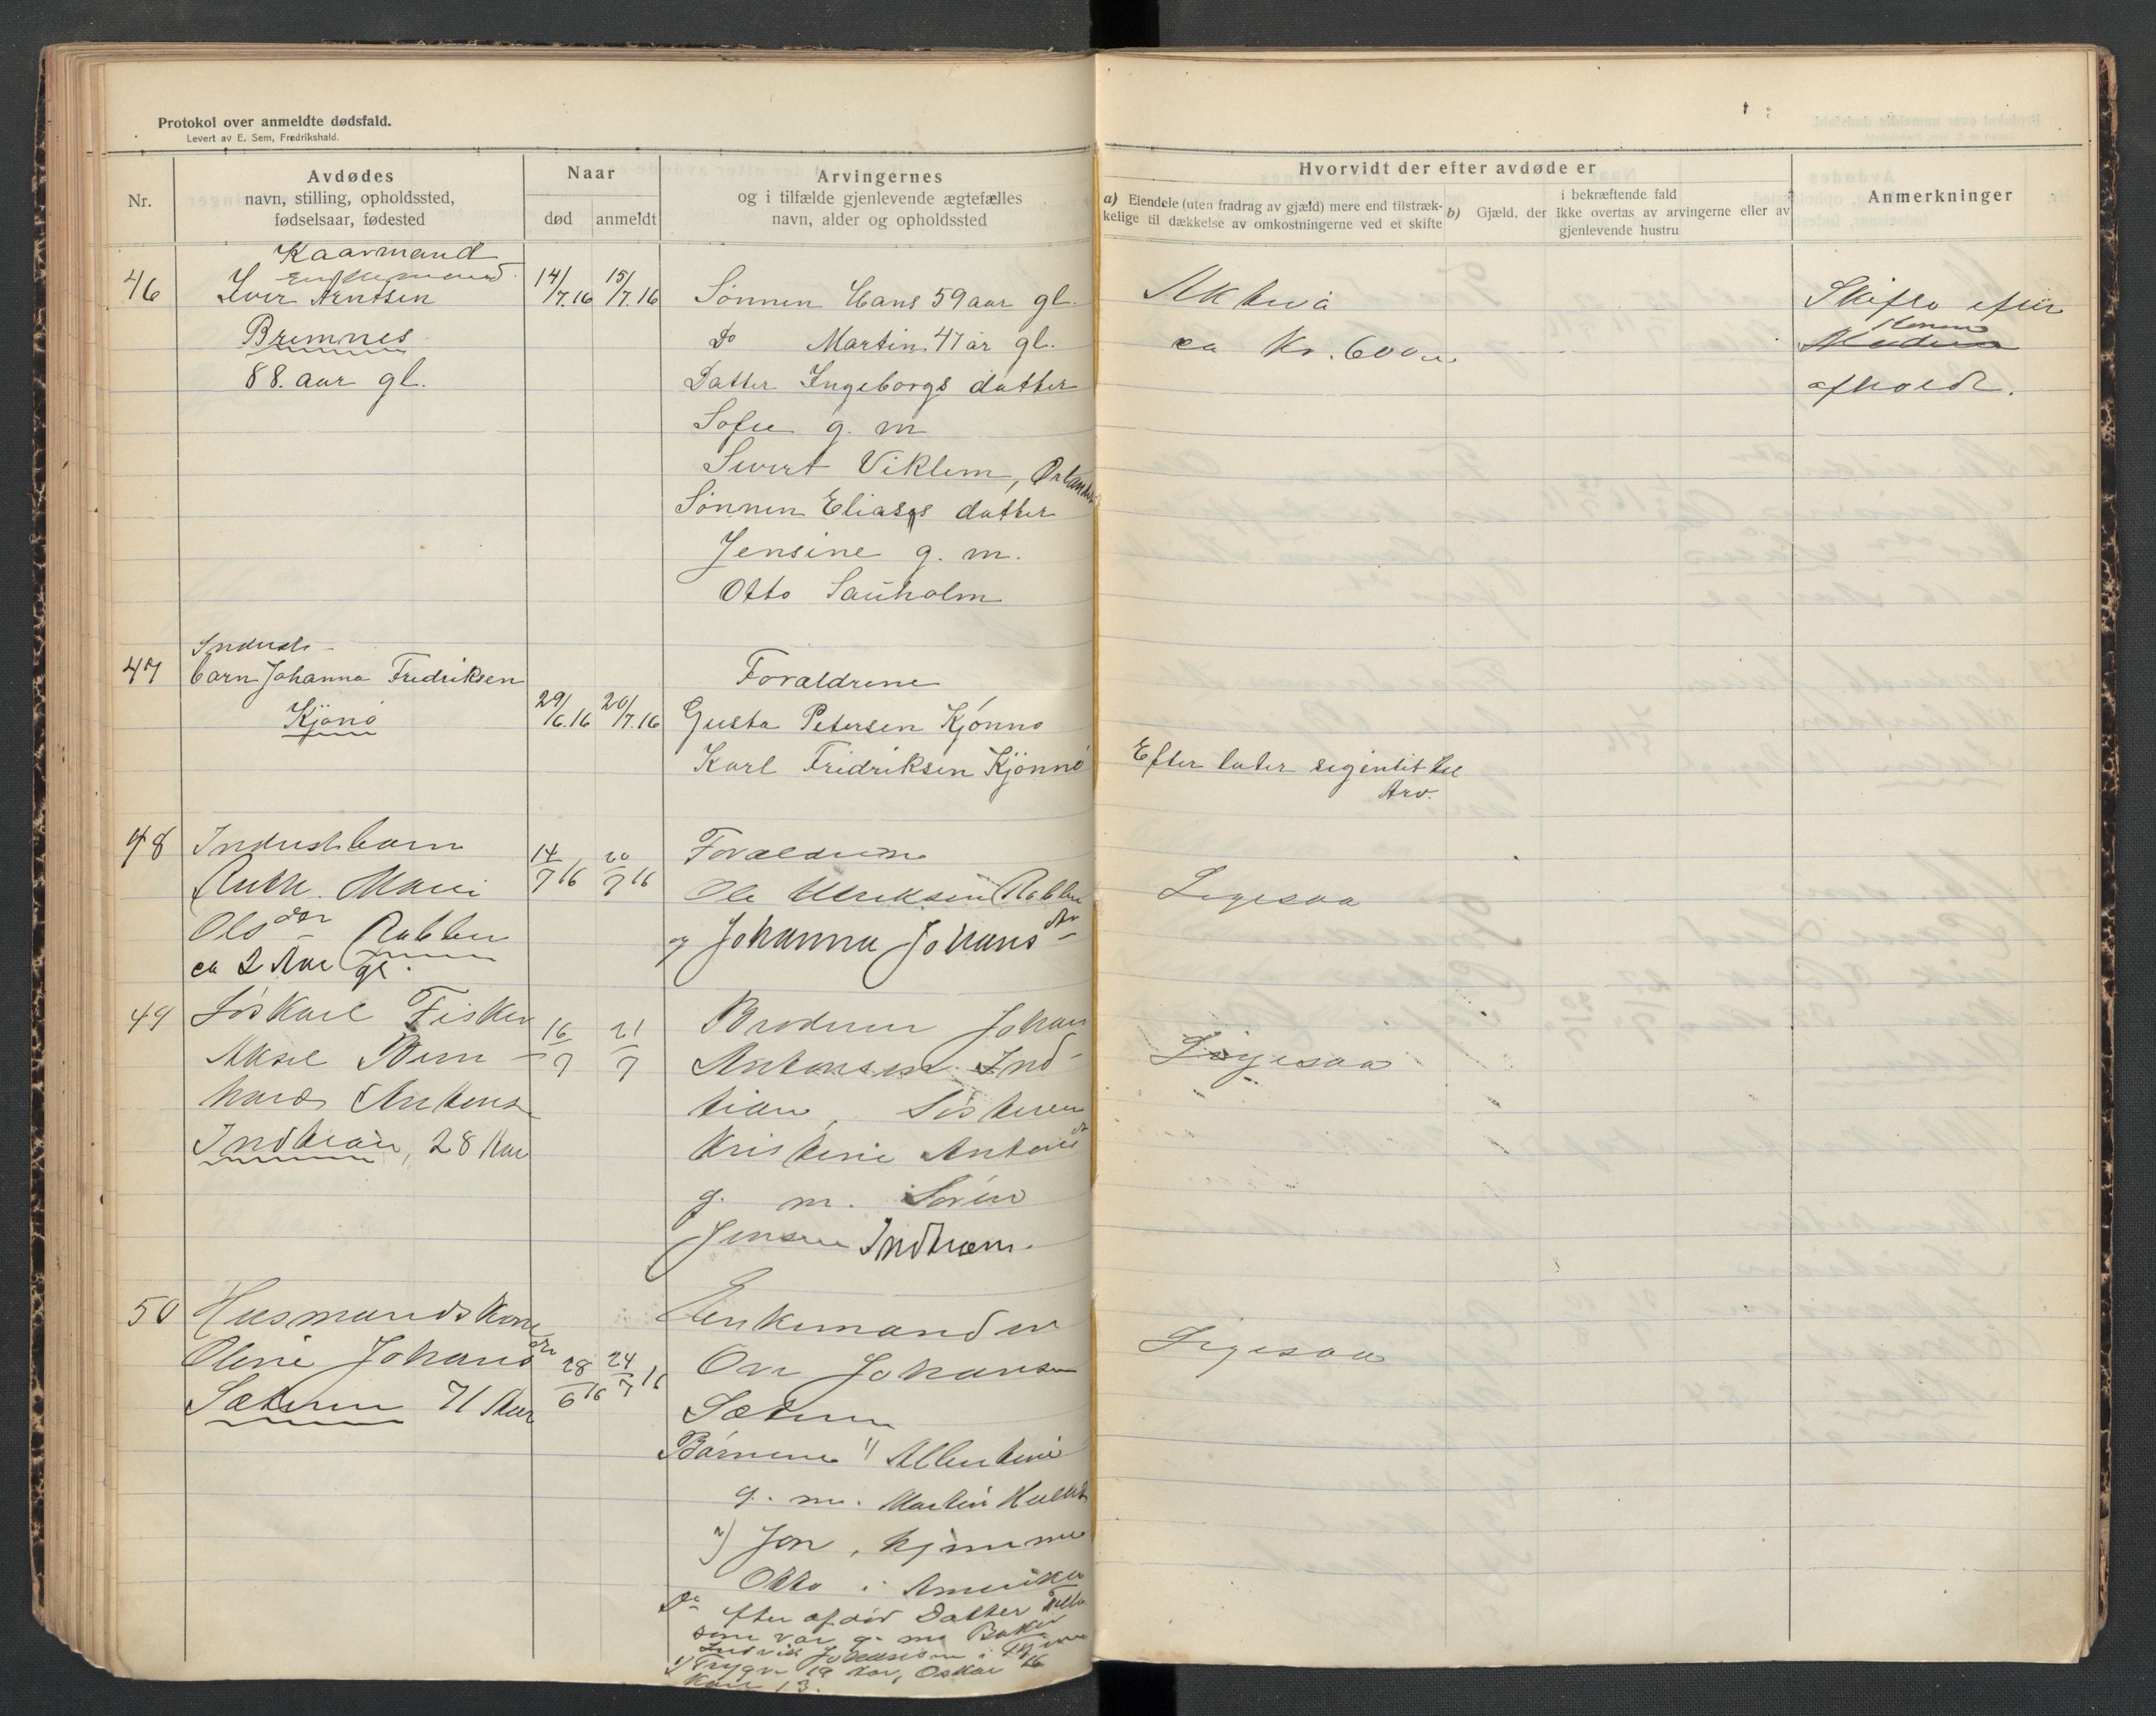 Protokol over anmeldte dødsfald.
Levert av E. Sem, Fredrikshald.
Nr.
Avdødes
navn, stilling, opholdssted,
fødselsaar, fødested
Naar
død
anmeldt
Arvingernes
og i tilfælde gjenlevende ægtefælles
navn, alder og opholdssted
Hvorvidt der efter avdøde er
a) Eiendele (uten fradrag av gjæld) mere end tilstræk-
kelige til dækkelse av omkostningerne ved et skifte
b) Gjæld, der
i bekræftende fald
Ikke overtas av arvingerne eller av
gjenlevende hustru
Anmerkninger
46
Kaarmand
Enkemand
Iver Arntsen
Bremnes
88. aar gl.
14/7.16
15/7.16
Sønnen Hans 59 aar gl.
Do Martin 47 år gl.
Datter Ingeborgs datter
Sofie g. m
Sivert Viklem, Ørlandet
Sønnen Eliases datter
Jensine g. m.
Otto Sauholm
Aktiva
ca Kr. 600
Skifte efter
Konen
afholdt.
47
Indust-
barn Johanna Fredriksen
Kjønø
29/6.16
20/7.16
Forældrene
Gusta Petersen Kjønnø
Karl Fridriksen Kjønnø
Efter later sig intet til
Arv.
48
Industbarn
Ruth Marie
Olsdtr Rabben
ca 2 Aar gl.
14/7 16
20/7 16
Forældrene
Ole Ulriksen Rabben
og Johanna Johansdtr
Ligesaa
49
Løskarl Fisker
Aksel Bern-
hard Antons
Indtian, 28 Aar
16/7
21/7
Broderen Johan
Antonsen Ind-
tian, Søsteren
Kristine Antonsdr
g. m. Søren
Jensen Indtian.
Ligesaa
50
Husmandskone
Oline Johansdtr
Sætren 71 Aar
28/6 16
24/7 16
Enkemanden
Ove Johansen
Sætren
Børnene 1) Albertine
g. m. Martin
2) Jon, hjemme
Otto i Amerika
Do efter afdød Datter
som var g. m. Baker
Ludvik Johansen i
1) Trygve 19 Aar, Oskar 16
Karl 13.
Ligesaa